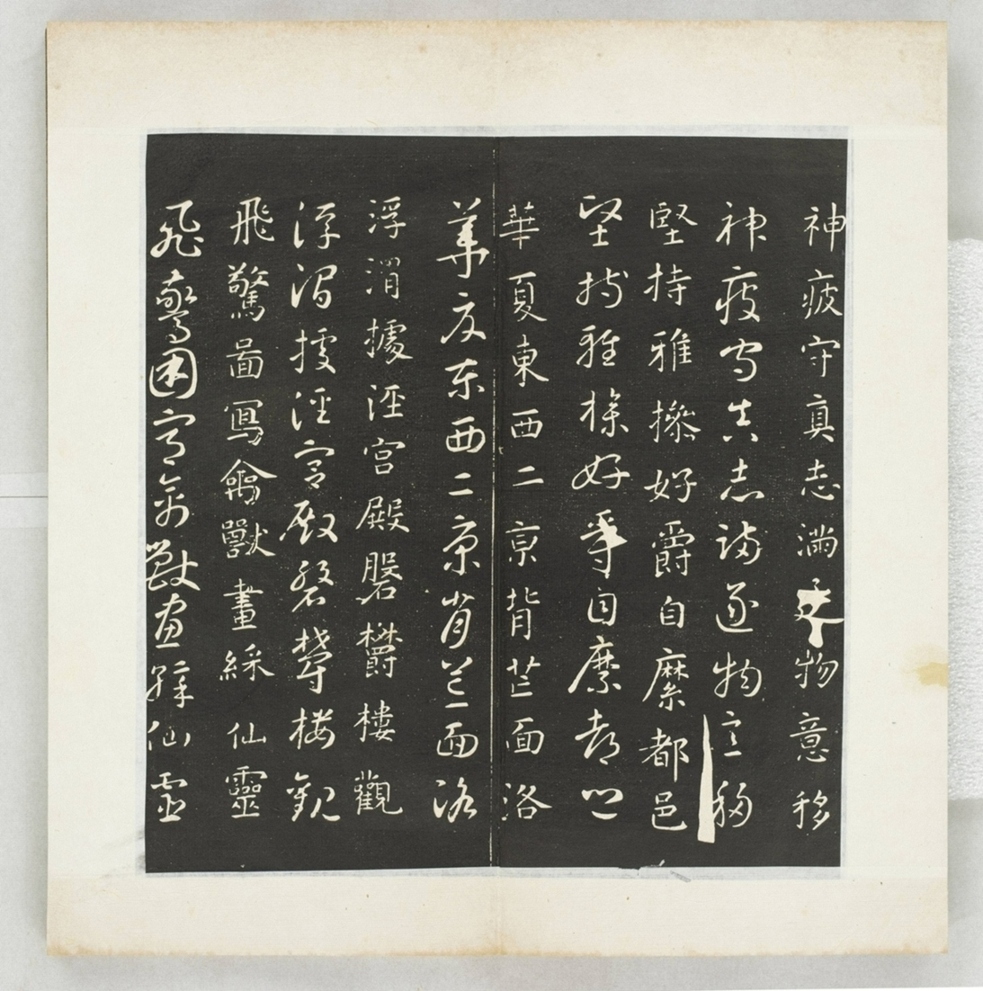 神疲守真志滿物意移
神疲守真志滿逐物意移
堅持雅操好爵自縻都邑
堅持雅操好爵自縻都邑
華夏東西二京背芒面洛
華夏東西二京背芒面洛
浮渭據涇宮殿磐欝樓觀
浮渭據涇宮殿磐欝樓觀
飛驚啚寫禽獸畫綵仙靈
飛驚圖寫禽獸畫綵仙靈